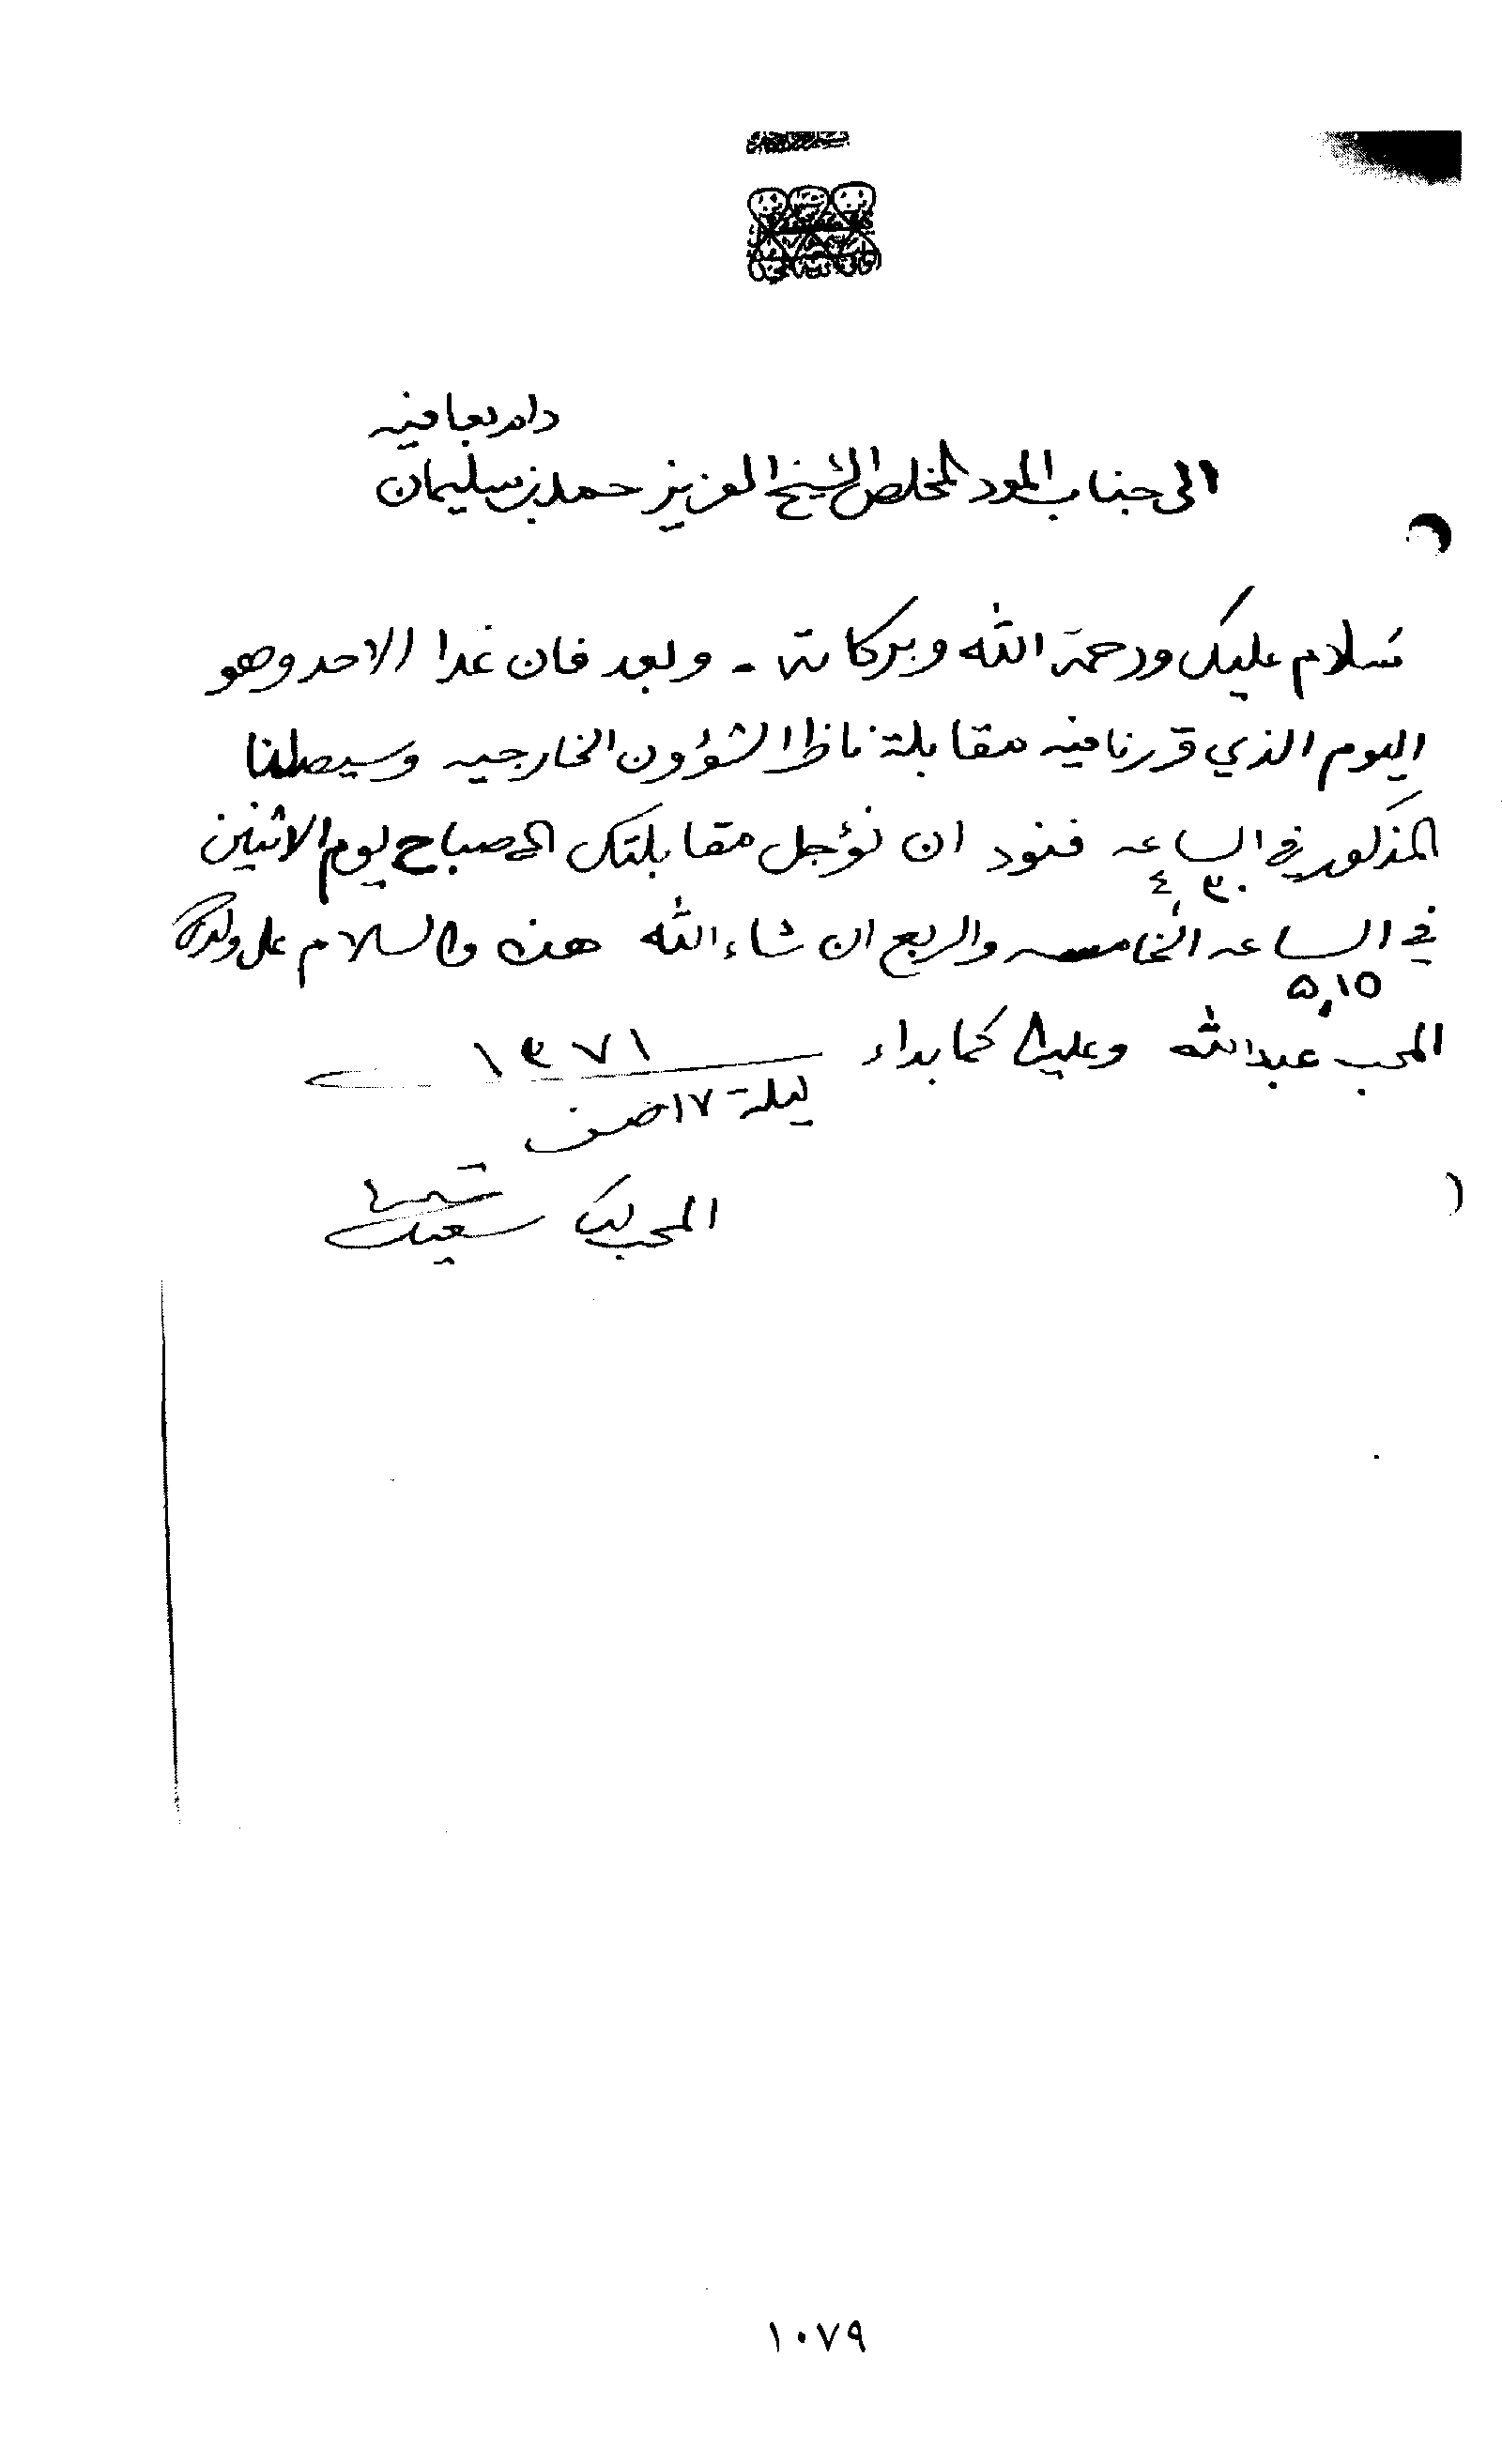 دام بعافيه
الى جناب المود المخلص الشيخ العزيز حمد بن سليمان
سلام عليك ورحمة الله وبركاته - وبعد فان غدا الاحد وهو
اليوم الذي قررنا فيه مقابلة ناظر الشؤون الخارجيه وسيصلنا
المذكور في الساعه فنود ان نؤجل مقابلتك الى صباح يوم الاثنين
٤،٣٠
في الساعه الخامسه والربع ان شاء الله هذه والسلام على ولدك
٥،١٥
المحب عبدالله وعليك كما بداء ١٣٧١
ليلة ١٧ صفر
المحب لك
سعيد
١٠٧٩